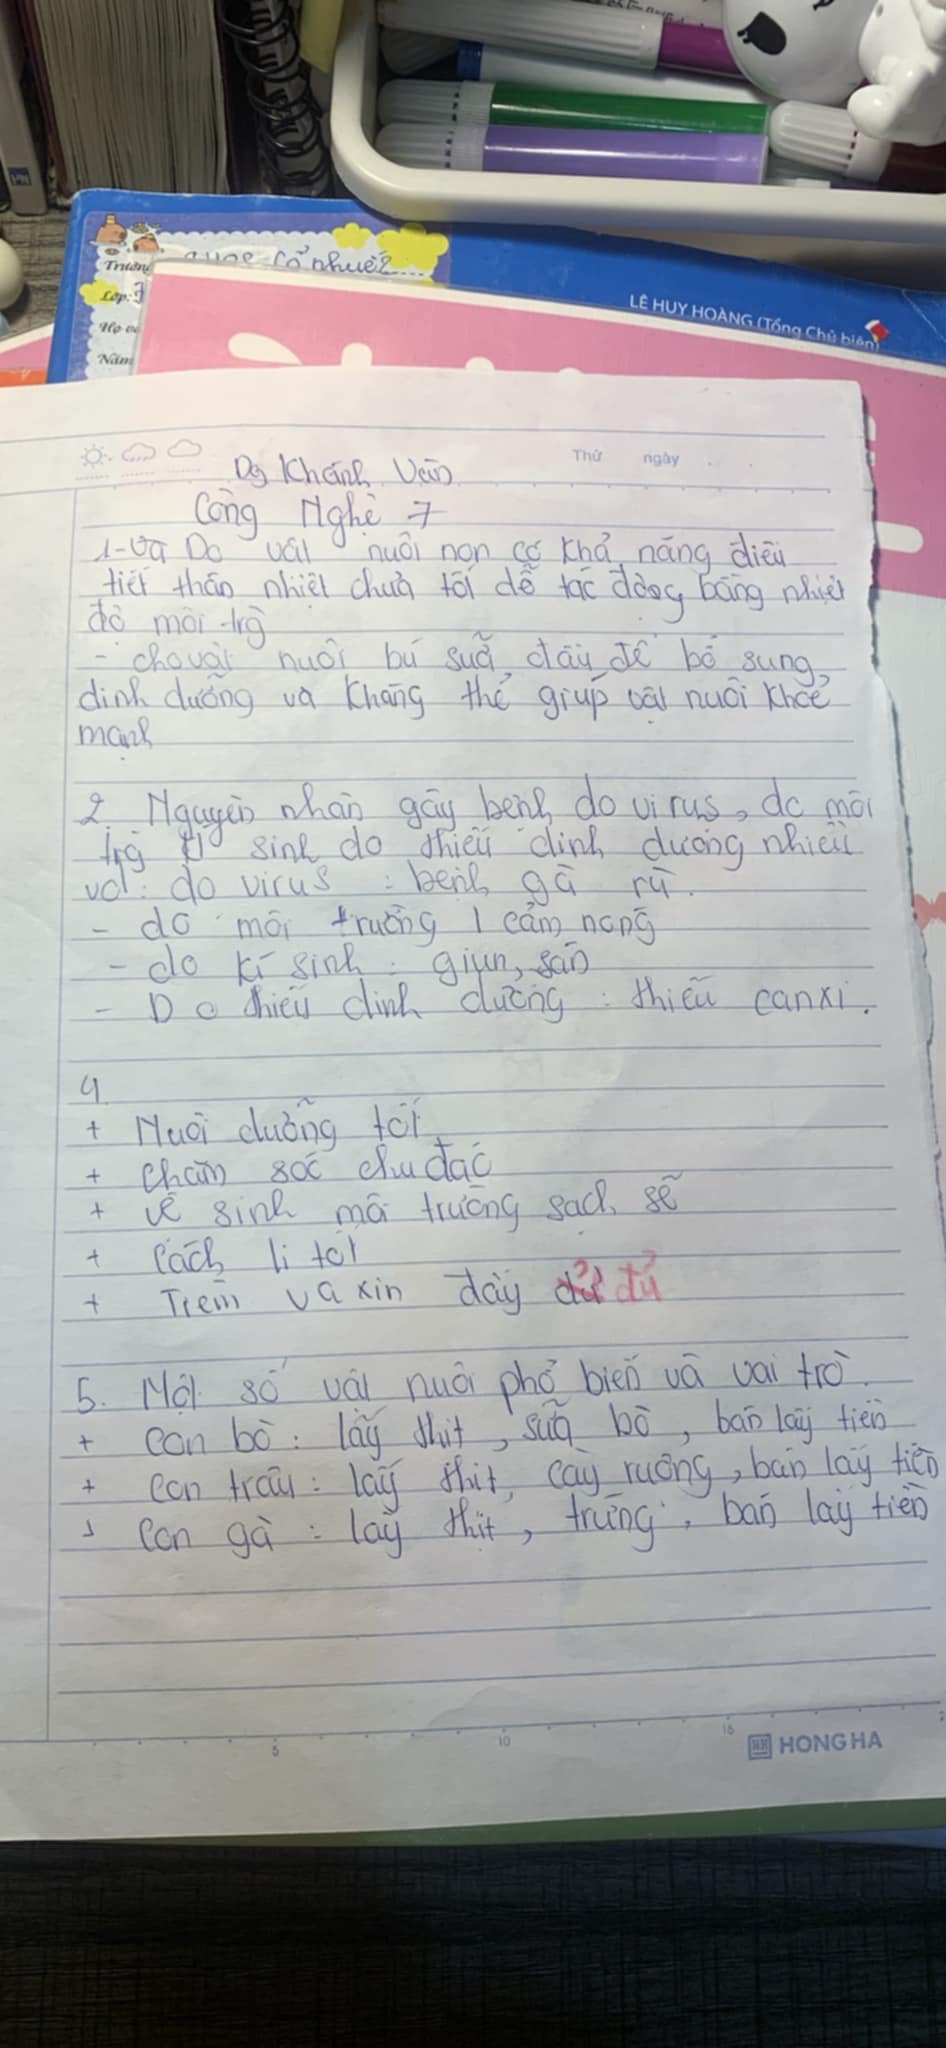 cổ nhuế 2
Trường
Lớp: 7
LÊ HUY HOÀNG (Tổng Chủ biên)
Họ và
Năm
Thứ ngày
Dg Khánh Vân
Công Nghệ 7
1-Và Do vật nuôi non có khả năng điều
tiết thân nhiệt chưa tốt dễ tác động bằng nhiệt
độ môi trg
- cho vật nuôi bú sữa đầu để bổ sung
dinh dưỡng và kháng thể giúp vật nuôi khoẻ
mạnh
2. Nguyên nhân gây bệnh do virus, do môi
trg kí sinh do thiếu dinh dưỡng nhiều
vd: do virus : bệnh gà rù.
- do môi trường : cảm nóng
- do kí sinh : giun, sán
- Do thiếu dinh dưỡng : thiếu canxi.
4
+ Nuôi dưỡng tốt
+ chăm sóc chu đáo
+ vệ sinh môi trường sạch sẽ
+ Cách li tốt
+ Tiêm vaxin đầy đủ
5. Một số vật nuôi phổ biến và vai trò.
+ con bò : lấy thịt, sữa bò, bán lấy tiền
+ con trâu : lấy thịt, cày ruộng, bán lấy tiền
+ Con gà : lấy thịt, trứng, bán lấy tiền
5 10 15
HONG HA